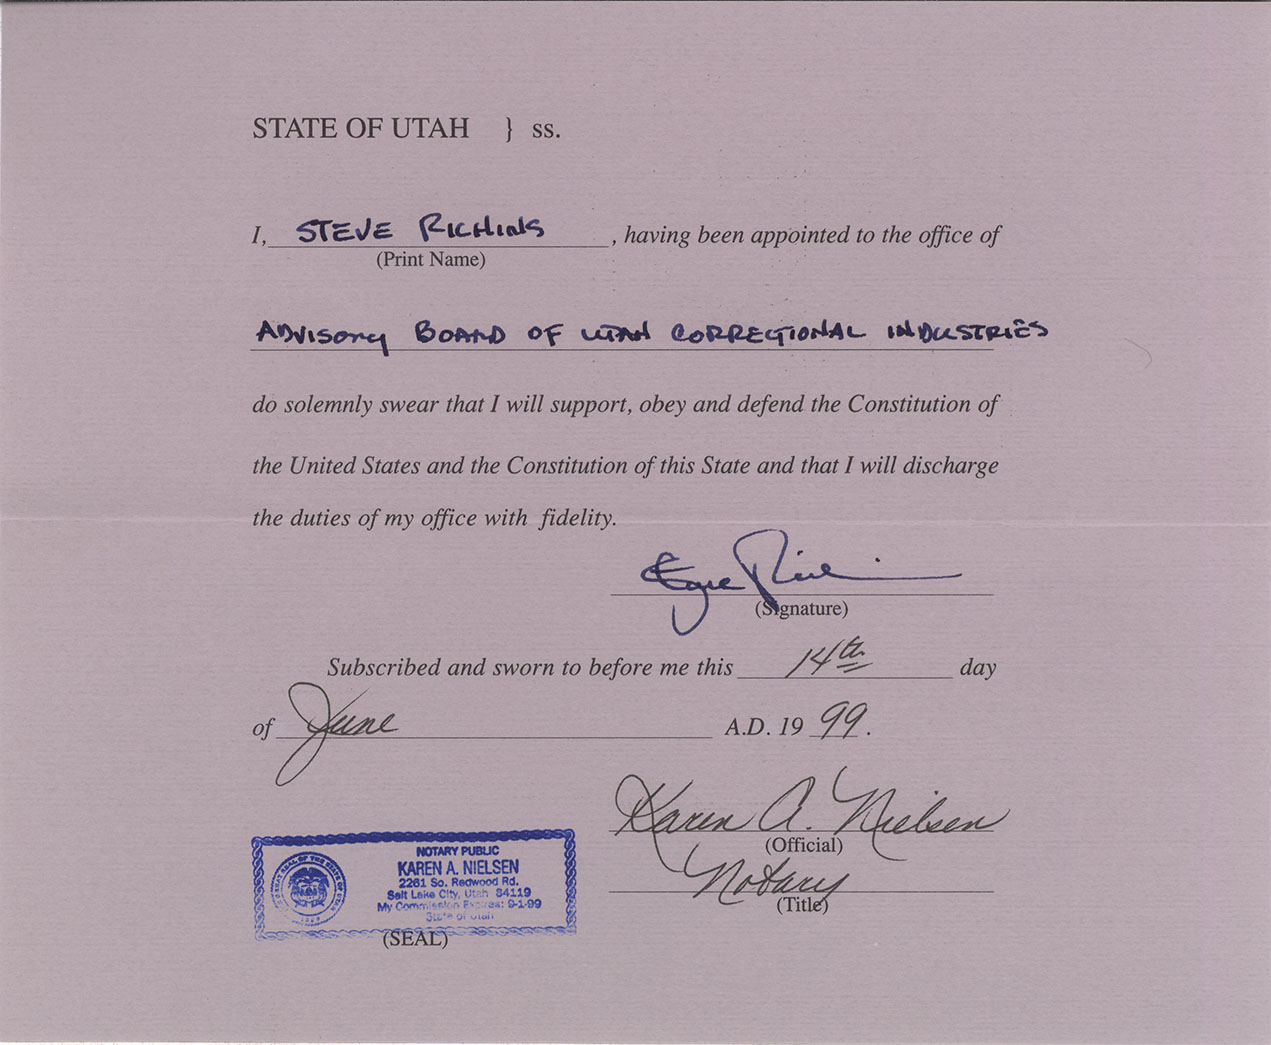 STATE OF UTAH } ss.
I, STEVE RICHINS, having been appointed to the office of
(Print Name)
ADVISORY BOARD OF UTAH CORRECTIONAL INDUSTRIES
do solemnly swear that I will support, obey and defend the Constitution of
the United States and the Constitution of this State and that I will discharge
the duties of my office with fidelity.
(Signature)
Subscribed and sworn to before me this 14th day
of June A.D. 1999.
Karen A. Nielsen
(Official)
Notary
(Title)
NOTARY PUBLIC
KAREN A. NIELSEN
2261 So. Redwood Rd.
Salt Lake City, Utah 84119
My Commission Expires: 9-1-99
State of Utah
(SEAL)